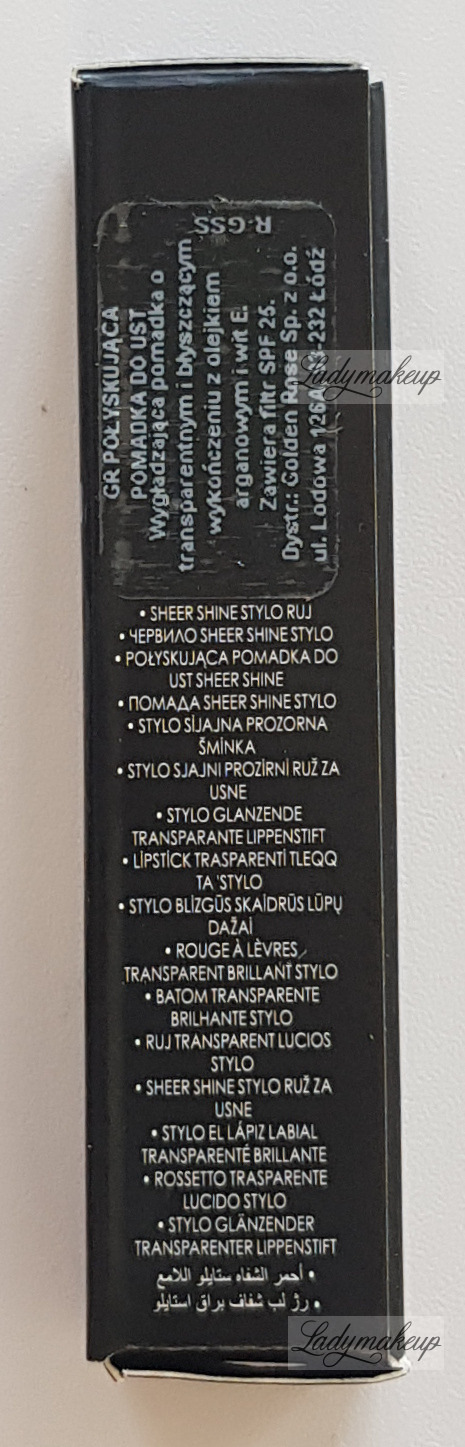 R-GSS
GR POŁYSKUJĄCA
POMADKA DO UST
Wygładzająca pomadka o
transparentnym i błyszczącym
wykończeniu z olejkiem
arganowym i wit E.
Zawiera filtr SPF 25.
Dystr.: Golden Rose Sp. z o.o.
ul. Lodowa 126A, 93-232 Łódź
Ladymakeup
• SHEER SHINE STYLO RUJ
• ЧЕРВИЛО SHEER SHINE STYLO
• POŁYSKUJĄCA POMADKA DO
UST SHEER SHINE
• ПОМАДА SHEER SHINE STYLO
• STYLO SİJAJNA PROZORNA
ŠMİNKA
• STYLO SJAJNI PROZİRNİ RUŽ ZA
USNE
• STYLO GLANZENDE
TRANSPARANTE LIPPENSTIFT
• LİPSTİCK TRASPARENTİ TLEQQ
TA 'STYLO
• STYLO BLİZGŪS SKAİDRŪS LŪPŲ
DAŽAİ
• ROUGE À LÈVRES
TRANSPARENT BRILLANT STYLO
• BATOM TRANSPARENTE
BRILHANTE STYLO
• RUJ TRANSPARENT LUCIOS
STYLO
• SHEER SHINE STYLO RUŽ ZA
USNE
• STYLO EL LÁPIZ LABIAL
TRANSPARENTÉ BRILLANTE
• ROSSETTO TRASPARENTE
LUCIDO STYLO
• STYLO GLÄNZENDER
TRANSPARENTER LIPPENSTIFT
• أحمر الشفاه ستايلو اللامع
• رژ لب شفاف براق استايلو
Ladymakeup